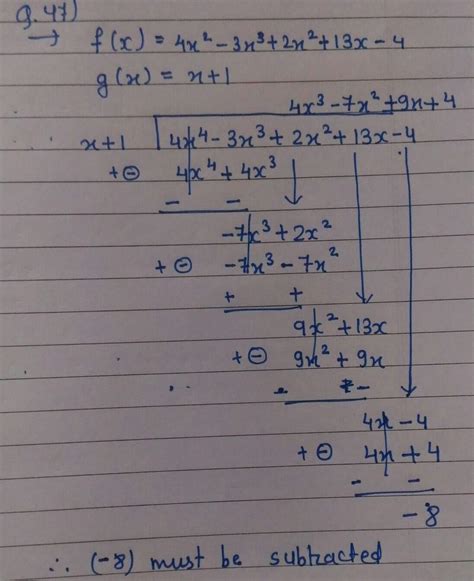 Q.47)
→ f(x) = 4x² - 3x³ + 2x² + 13x - 4
g(x) = x+1
4x³ - 7x² + 9x + 4
x+1 4x⁴ - 3x³ + 2x² + 13x - 4
+⊖ 4x⁴ + 4x³
- -
-7x³ + 2x²
+⊖ -7x³ - 7x²
+ +
9x² + 13x
+⊖ 9x² + 9x
- -
4x - 4
+⊖ 4x + 4
- -
-8
∴ (-8) must be subtracted